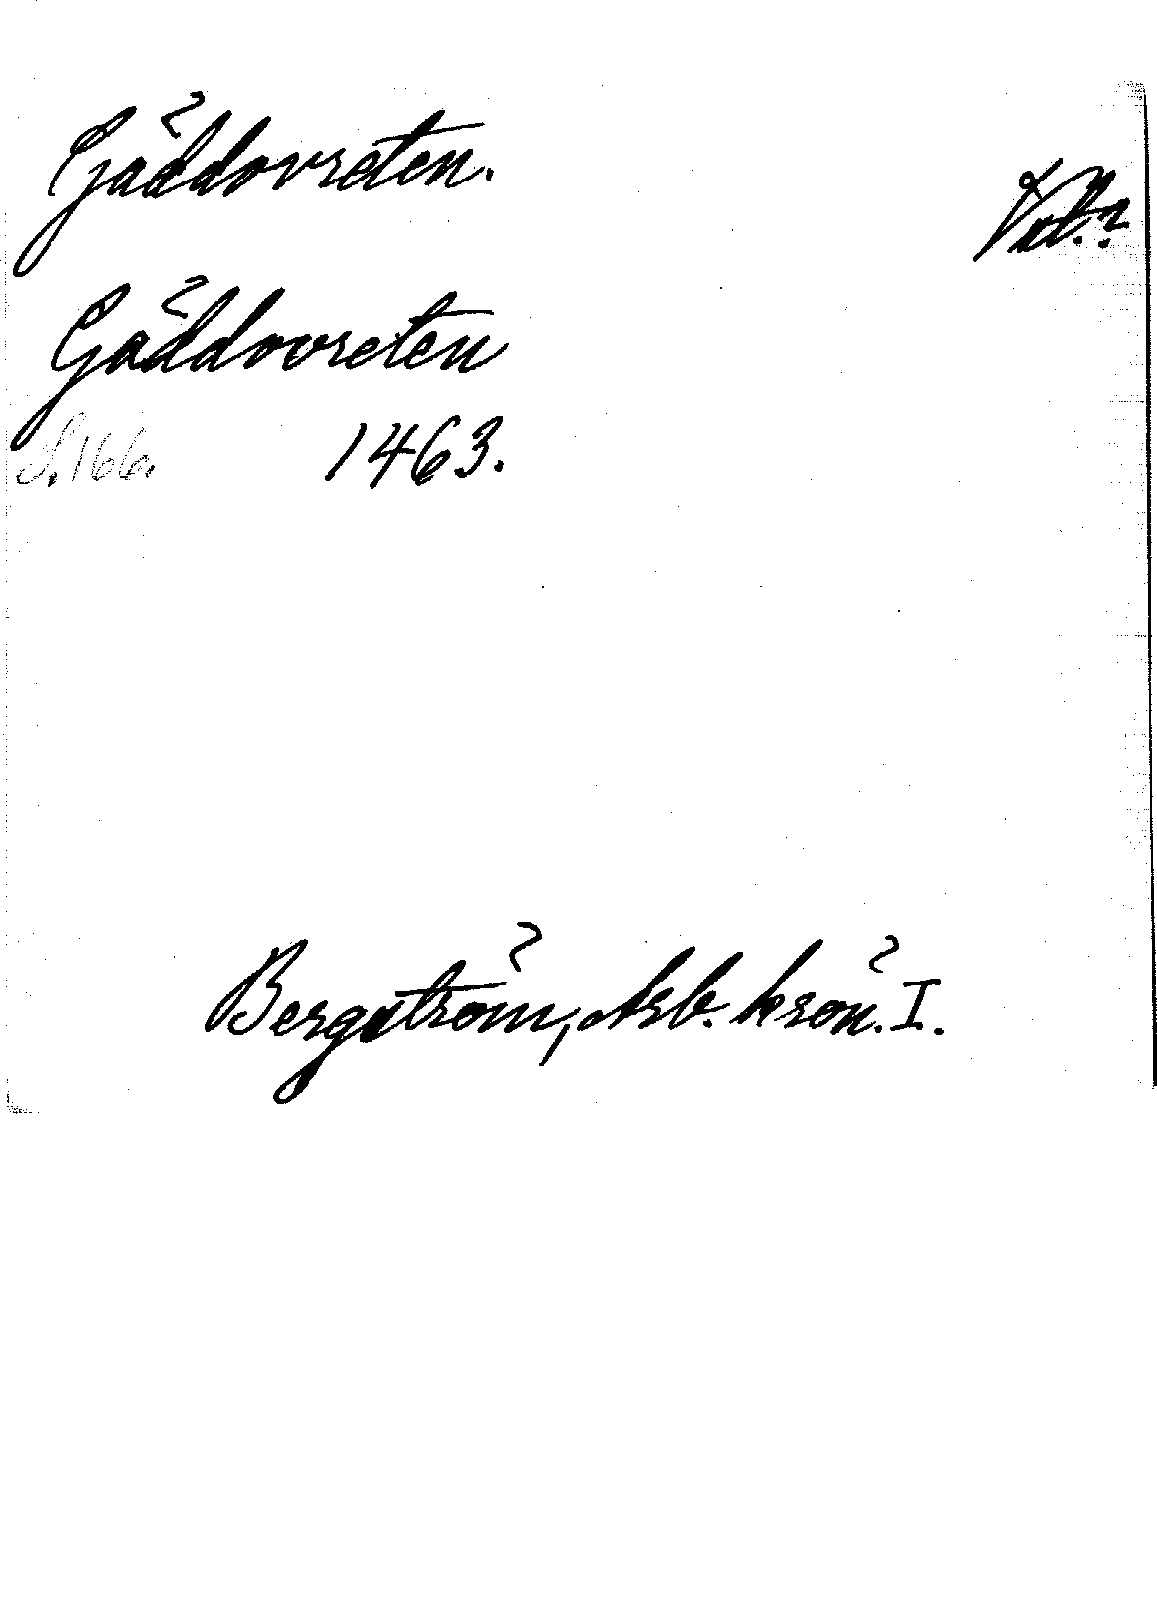 Gäddovreten.
Gäddovreten
S. 166. 1463.
Bergström, Arb. krön. I.